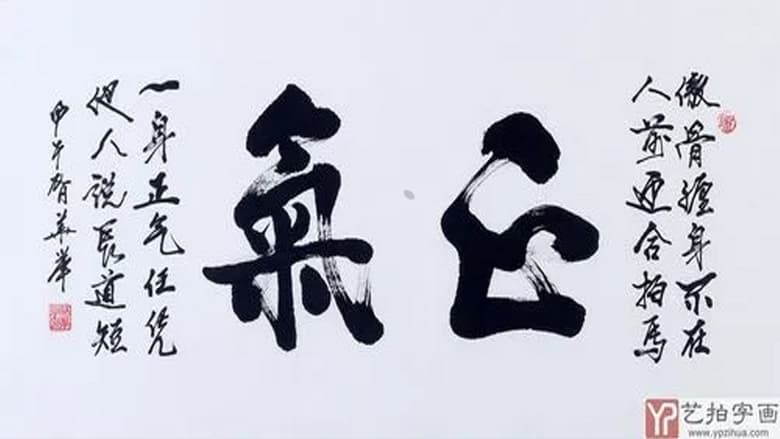 傲骨缠身不在
人前迎合拍马
正氣
一身正气任凭
他人说长道短
甲午智华笔
艺拍字画
www.ypzihua.com